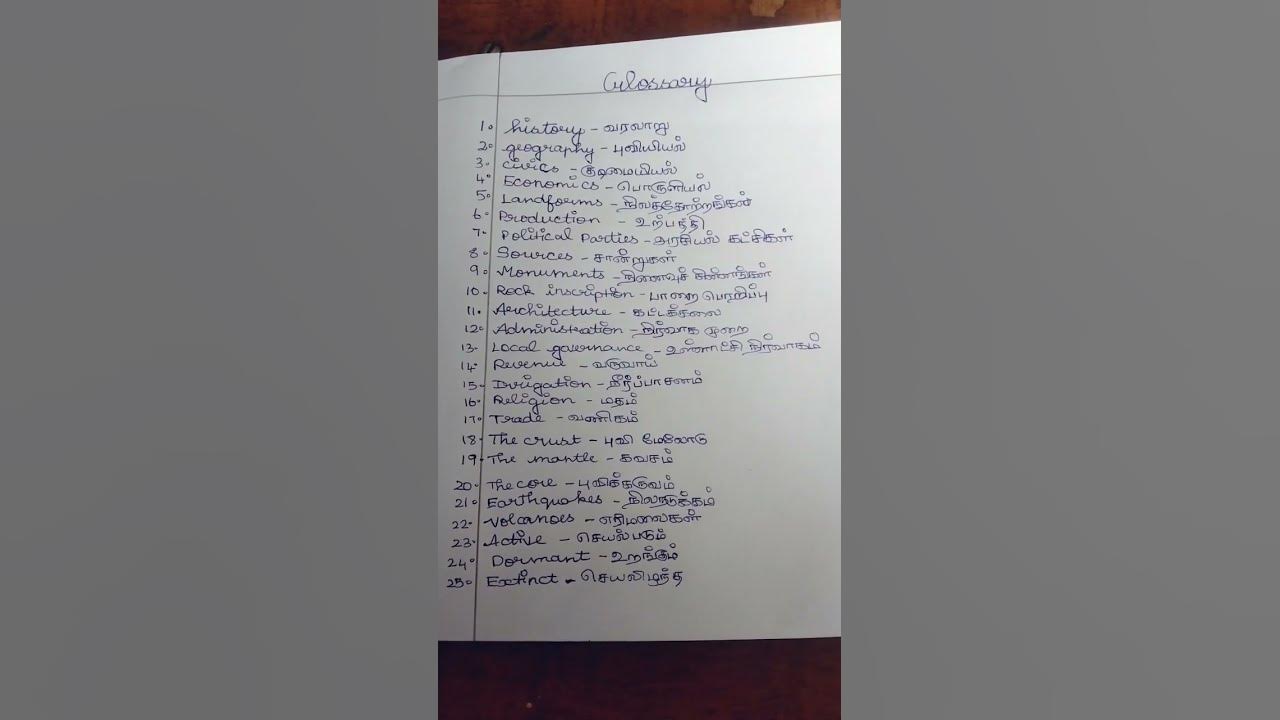 Glossary
1. history - வரலாறு
2. geography - புவியியல்
3. civics - குடிமையியல்
4. Economics - பொருளியல்
5. Landforms - நிலத்தோற்றங்கள்
6. Production - உற்பத்தி
7. Political Parties - அரசியல் கட்சிகள்
8. Sources - சான்றுகள்
9. Monuments - நினைவுச் சின்னங்கள்
10. Rock inscription - பாறை பொறிப்பு
11. Architecture - கட்டக்கலை
12. Administration - நிர்வாக முறை
13. Local governance - உள்ளாட்சி நிர்வாகம்
14. Revenue - வருவாய்
15. Irrigation - நீர்ப்பாசனம்
16. Religion - மதம்
17. Trade - வணிகம்
18. The crust - புவி மேலோடு
19. The mantle - கவசம்
20. The core - புவிக்கருவம்
21. Earthquakes - நிலநடுக்கம்
22. Volcanoes - எரிமலைகள்
23. Active - செயல்படும்
24. Dormant - உறங்கும்
25. Extinct - செயலிழந்த